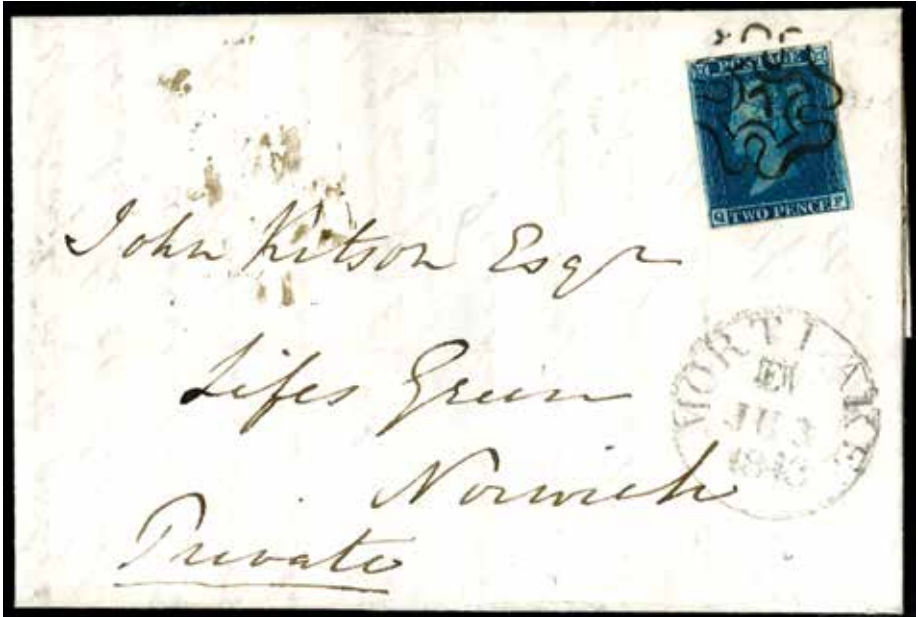 POSTAGE
Q TWO PENCE F
John Kitson Esqr
Green
Norwich
Private
MORTLAKE
JU 3
1843